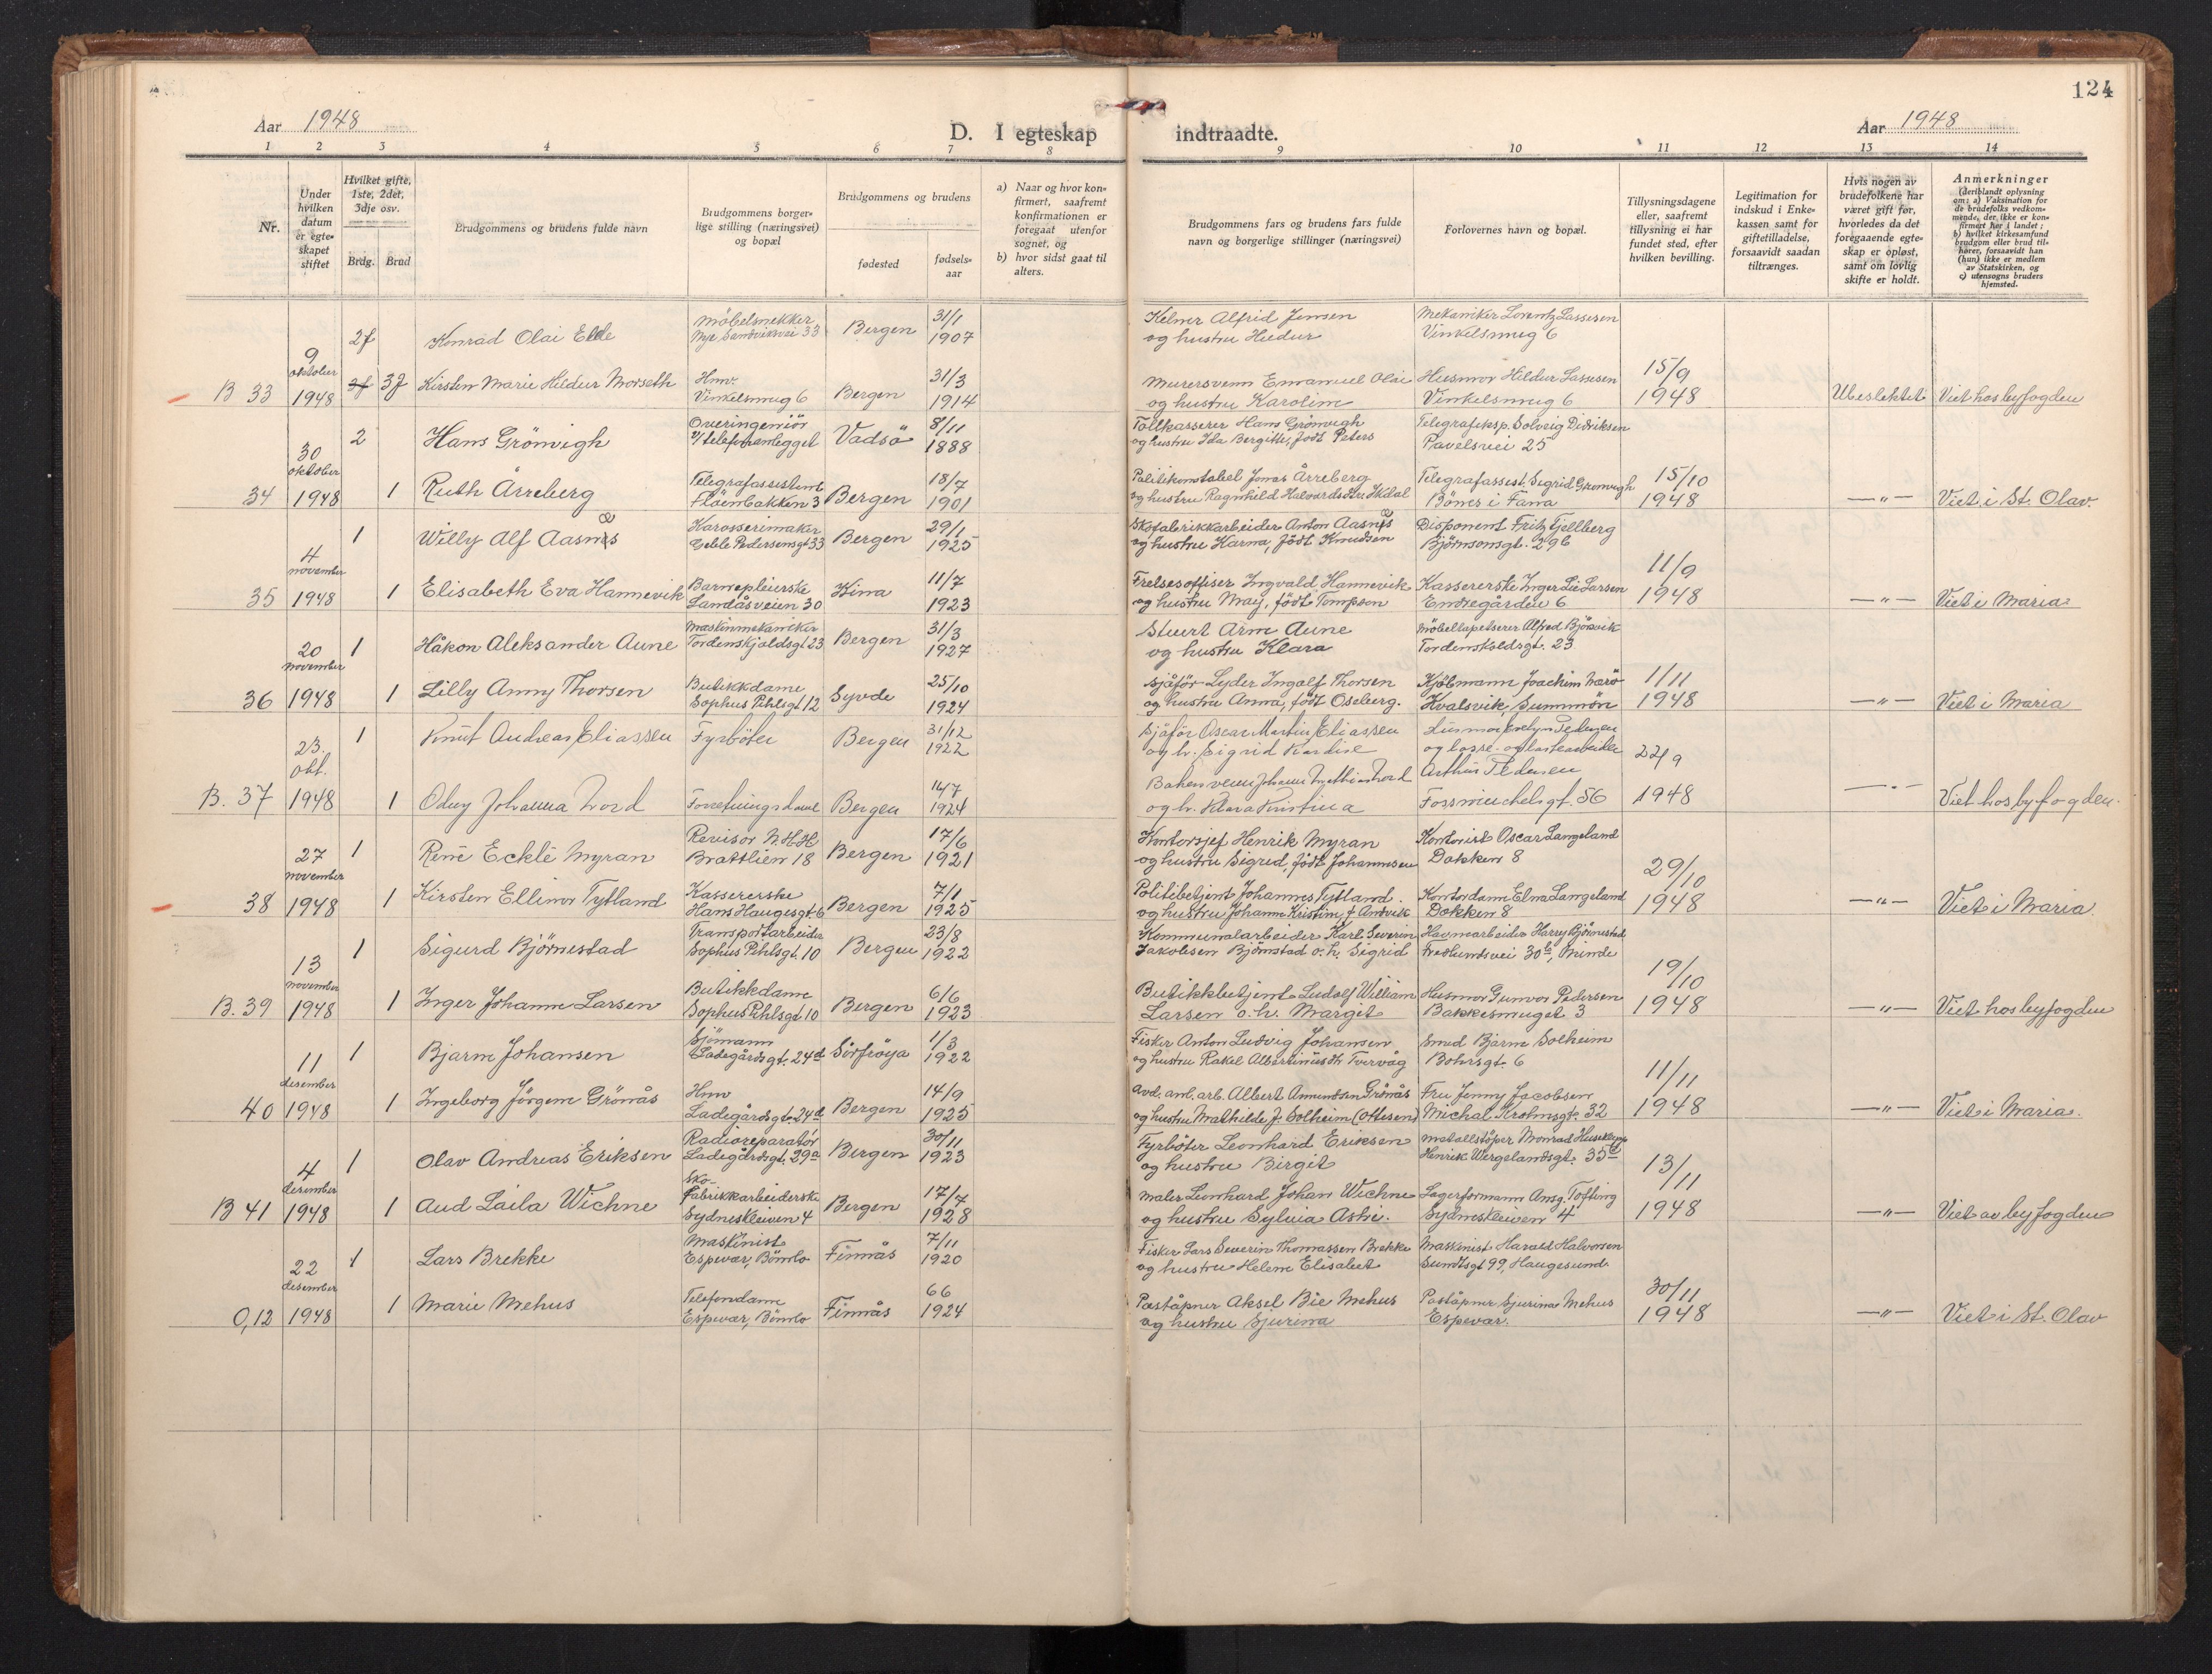 Aar 1948
D. I egteskap
indtraadte.
Aar 1948
124
1 2 3 4 5 6 7 8 9 10 11 12 13 14
Nr.
Under hvilken datum er egteskapet stiftet
Hvilket gifte, 1ste, 2det, 3dje osv.
Brdg. Brud
Brudgommens og brudens fulde navn
Brudgommens borgerlige stilling (næringsvei) og bopæl
Brudgommens og brudens
fødested
fødselsaar
a) Naar og hvor konfirmert, saafremt konfirmationen er foregaat utenfor sognet, og
b) hvor sidst gaat til alters.
Brudgommens fars og brudens fars fulde navn og borgerlige stillinger (næringsvei)
Forlovernes navn og bopæl.
Tillysningsdagene eller, saafremt tillysning ei har fundet sted, efter hvilken bevilling.
Legitimation for indskud i Enkekassen samt for giftetilladelse, forsaavidt saadan tiltrænges.
Hvis nogen av brudefolkene har været gift før, hvorledes da det foregaaende egteskap er opløst, samt om lovlig skifte er holdt.
Anmerkninger (deriblandt oplysning om: a) Vaksination for de brudefolks vedkommende, der ikke er konfirmert her i landet; b) hvilket kirkesamfund brudgom eller brud tilhører, forsaavidt han (hun) ikke er medlem av Statskirken, og c) utensogns bruders hjemsted.
2f Konrad Olai Elde Möbelsnekker Nye Sandviksvei 33 Bergen 31/1 1907 Kelner Alfrid Jensen og hustru Hildur Mekaniker Lorentz Lassesen Vinkelsmug 6
B 33 9 oktober 1948 3f Kirsten Marie Hildur Morseth Hmv. Vinkelsmug 6 Bergen 31/3 1914 Murersvenn Emanuel Olai og hustru Karoline Husmor Hildur Lassesen Vinkelsmug 6 15/9 1948 Ubeslektet Viet hos byfogden
2 Hans Grönvigh Overingeniör v/telefonanlegget Vadsö 8/11 1888 Tollkasserer Hans Grönvigh og hustru Ida Bergitte, født Peters Telegrafeksp. Solveig Didriksen Pavelsvei 25
34 30 oktober 1948 1 Ruth Årreberg Telegrafassistent Fløenbakken 3 Bergen 18/7 1901 Politikonstabel Jonas Årreberg og hustru Ragnhild Halvardsdtr. Ekdal Telegrafassest. Sigrid Grønvigh Bönes i Fana 15/10 1948 —"— Viet i St. Olav.
1 Willy Alf Aasnæs Karosserimaker Geble Pedersensgt 33 Bergen 29/1 1925 Skofabrikkarbeider Anton Aasnæs og hustru Karna, født Knudsen Disponent Fritz Fjellberg Björnsonsgt. 29b
35 4 november 1948 1 Elisabeth Eva Hannevik Barnepleierske Landåsveien 30 Kina 11/7 1923 Frelsesoffiser Ingvald Hannevik og hustru May, født Tompson Kassererske Inger Lie Larsen Endregården 6 11/9 1948 —"— Viet i Maria
1 Håkon Aleksander Aune Maskinmekaniker Tordenskjoldsgt 23 Bergen 31/3 1927 Stuert Arne Aune og hustru Klara Möbeltapetserer Alfred Björsvik Tordenskoldsgt. 23
36 20 november 1948 1 Lilly Anny Thorsen Butikkdame Sophus Pihlsgt 12 Syvde 25/10 1924 Sjåför Lyder Ingolf Thorsen og hustru Anna, født Oseberg. Kjöbmann Joachim Kvalsvik, Sunnmöre 1/11 1948 —"— Viet i Maria
1 Knut Andreas Eliassen Fyrböter Bergen 31/12 1922 Sjåför Oscar Martin Eliassen og h. Sigrid Kardise Husmor Evelyn Pedersen og losse- og lastearbeider
B. 37 23. okt. 1948 1 Odny Johanna Nord Forretningsdame Bergen 14/7 1924 Bakersvenn Johann Mathias Nord og h. Klara Kristina Arthur Pedersen Fosswinckelsgt. 56 22/9 1948 —"— Viet hos byfogden.
1 René Ecklé Myran Revisor N.H.H Brattlien 18 Bergen 17/6 1921 Kontorsjef Henrik Myran og hustru Sigrid, født Johannesen Kontorist Oscar Langeland Dokken 8
38 27 november 1948 1 Kirsten Ellinor Tytland Kassererske Hans Haugesgt. 6 Bergen 7/1 1925 Politibetjent Johannes Tytland. og hustru Johanne Kristine f. Andvik Kontordame Elna Langeland Dokken 8 29/10 1948 —"— Viet i Maria
1 Sigurd Björnestad Transportarbeider Sophus Pihlsgt. 10 Bergen 23/8 1922 Kommunalarbeider Karl Severin Jakobsen Björnstad o. h. Sigrid Havnearbeider Harry Björnestad Fredlundsvei 30b, Minde
B. 39 13 november 1948 1 Inger Johanne Larsen Butikkdame Sophus Pihlsgt 10 Bergen 6/6 1923 Butikkbetjent Ludolf William Larsen o. h. Margit Husmor Gunvor Pedersen Bakkesmuget 3 19/10 1948 —"— Viet hos byfogden
1 Bjarne Johansen Sjömann Ladegårdsgt. 24d Sörfröya 1/3 1922 Fisker Anton Ludvig Johansen og hustru Rakel Albertinusdtr. Tvervåg Smed Bjarne Solheim Bohrsgt. 6
40 11 desember 1948 1 Ingeborg Jörgene Grönås Hmv Ladegårdsgt. 24d Bergen 14/9 1925 Avd. anl. arb. Albert Amundsen Grönås og hustru Mathilde f. Solheim (Ottesen) Fru Jenny Jacobsen Michal Krohnsgt. 32 11/11 1948 —"— Viet i Maria.
1 Olav Andreas Eriksen Radioreparatör Ladegårdsgt. 29a Bergen 30/11 1923 Fyrböter Leonhard Eriksen og hustru Birgit Metallstöper Monrad Henrik Wergelandsgt. 35
B 41 4 desember 1948 1 Aud Laila Wichne Sko-fabrikkarbeiderske Sydneskleiven 4 Bergen 17/7 1928 Maler Leonhard Johan Wichne og hustru Sylvia Astri. Lagerformann Amg. Tofting Sydneskleiven 4 13/11 1948 —"— Viet av byfogden
1 Lars Brekke Maskinist Espevær, Bömlo Finnås 7/11 1920 Fisker Lars Severin Thomassen Brekke og hustru Helene Elisabet Maskinist Harald Halvorsen Sundtsgt 99, Haugesund.
0,12 22 desember 1948 1 Marie Mehus Telefondame Espevær, Bömlo Finnås 66 1924 Poståpner Aksel Bie Mehus og hustru Sjurina Poståpner Sjurina Mehus Espevær. 30/11 1948 —"— Viet i St. Olav